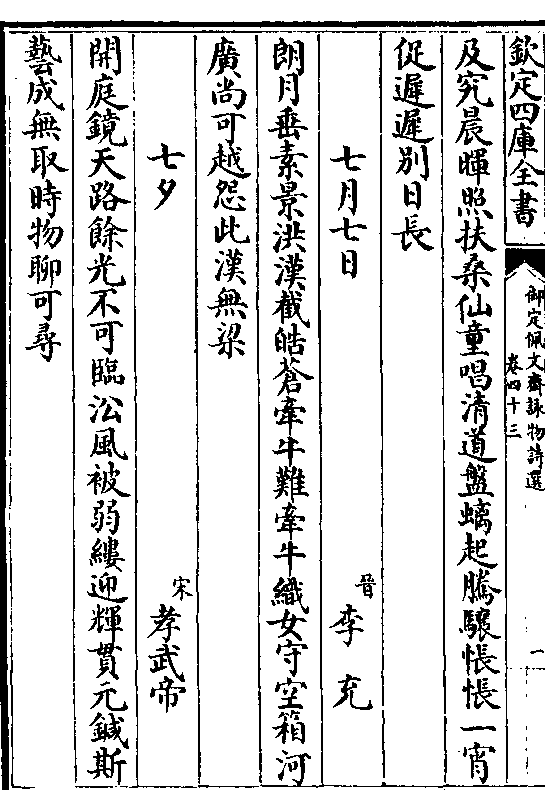 欽定四庫全書
御定佩文齋詠物詩選
卷四十三
一
及究晨暉照扶桑仙童唱清道盤螭起騰驤悵悵一宵
促遲遲别日長
七月七日
晉
李充
朗月垂素景洪漢截皓蒼牽牛難牽牛織女守空箱河
廣尚可越怨此漢無梁
七夕
宋
孝武帝
開庭鏡天路餘光不可臨沿風被弱縷迎輝貫元鍼斯
藝成無取時物聊可尋